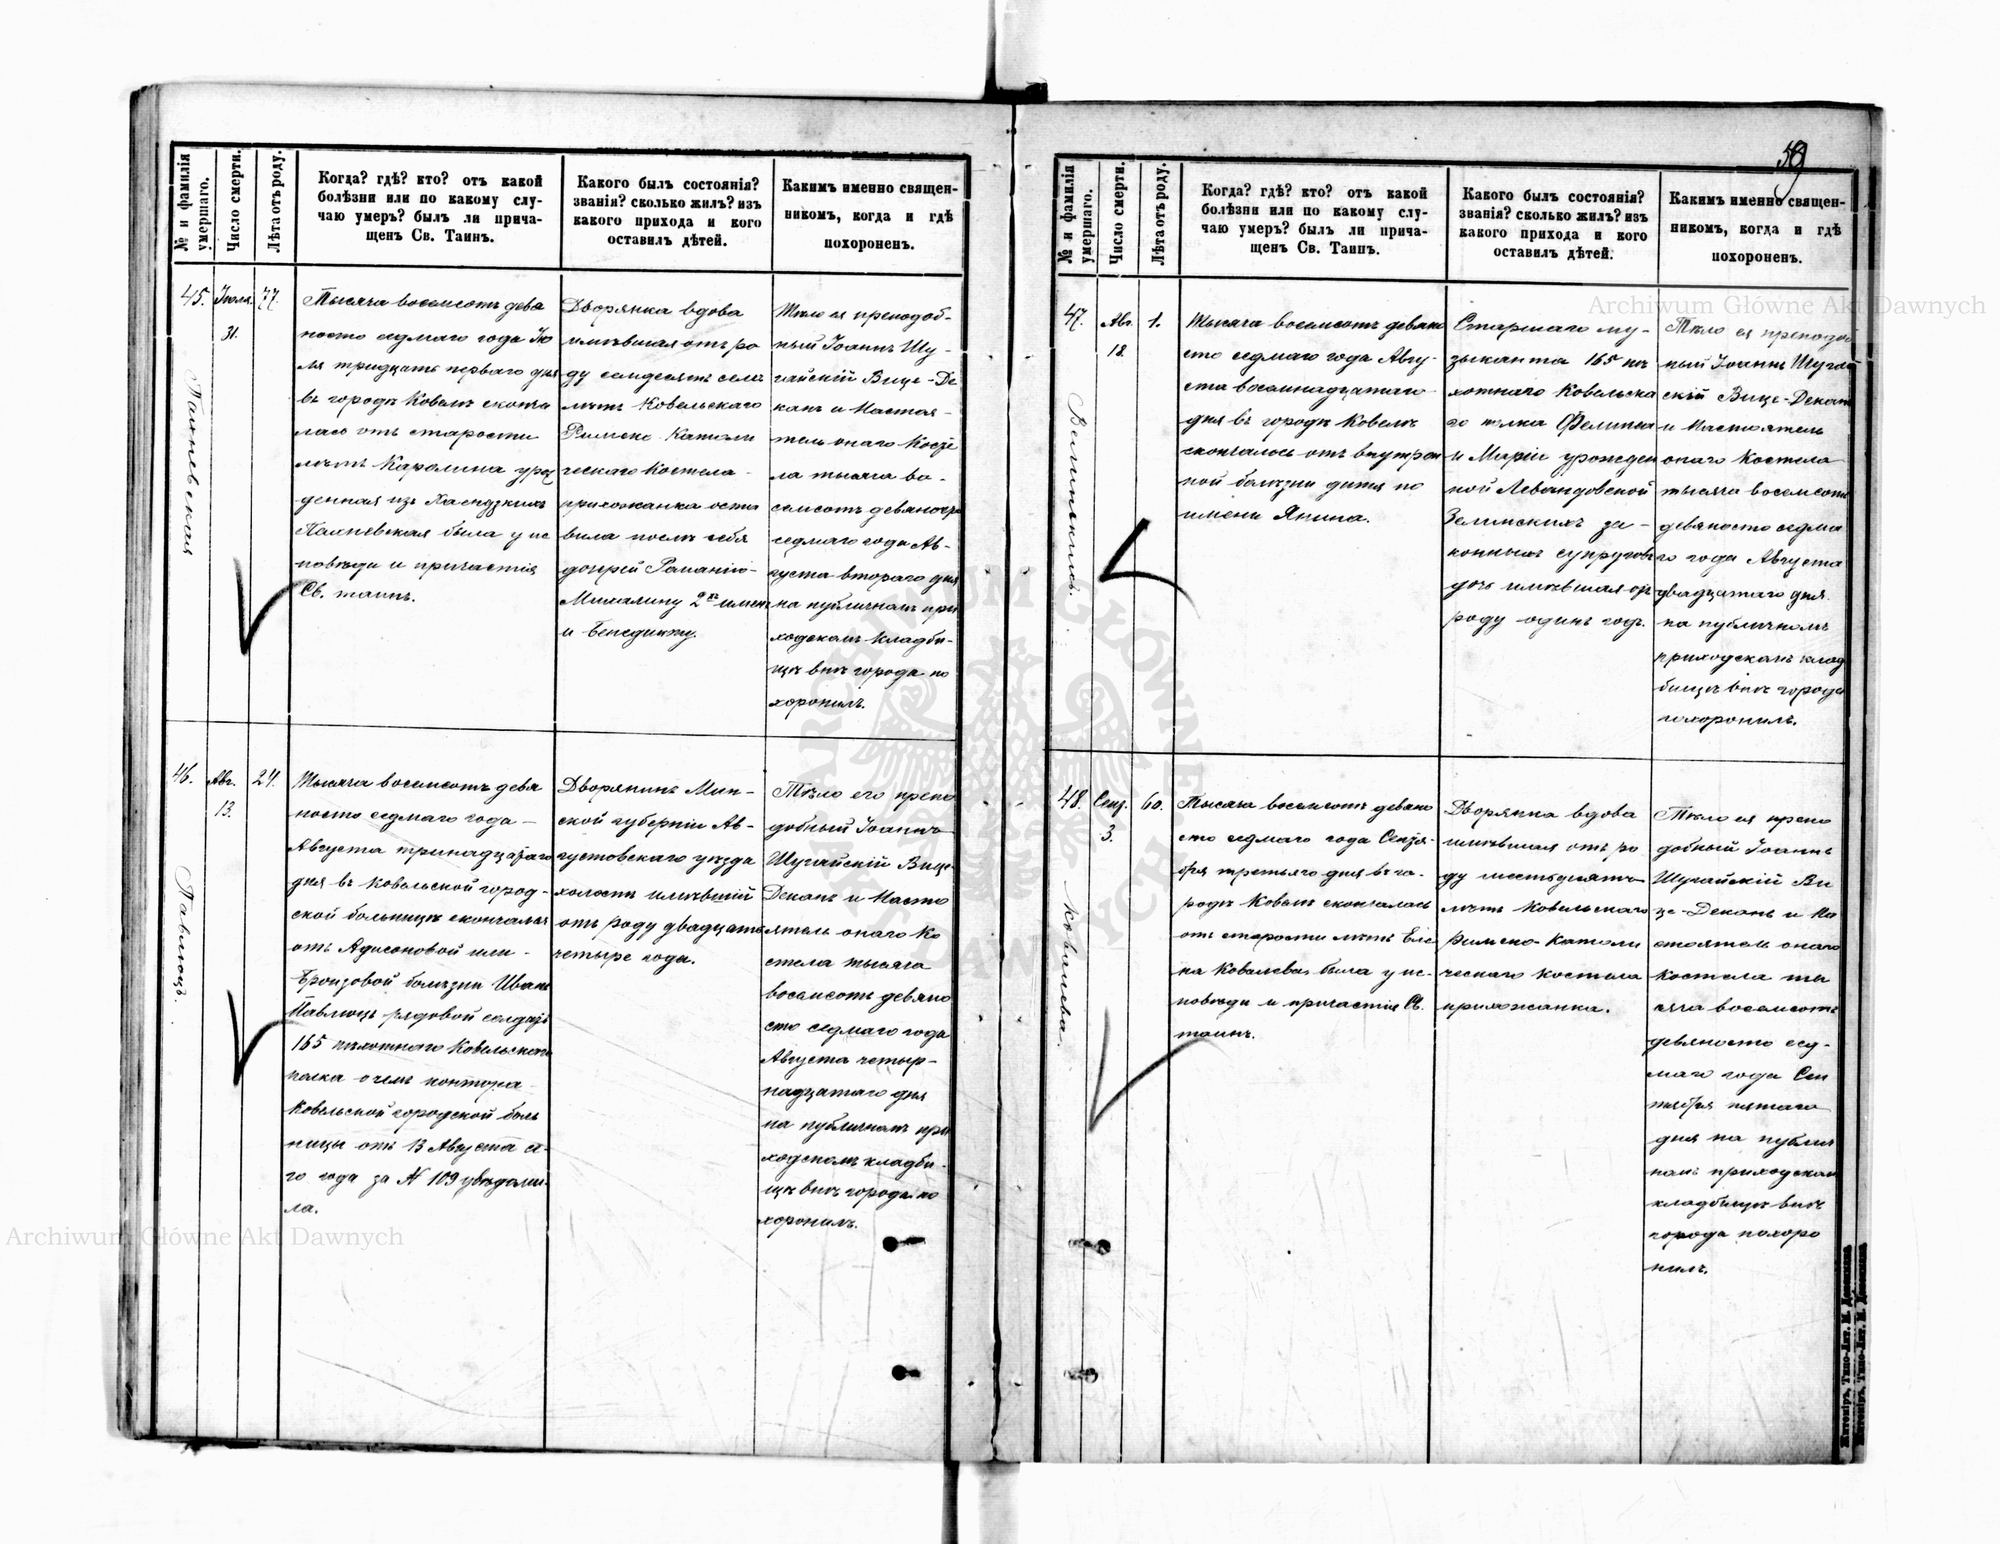 № и фамилія умершаго.
Число смерти.
Лѣта отъ роду.
Когда? гдѣ? кто? отъ какой
болѣзни или по какому слу-
чаю умеръ? былъ ли прича-
щенъ Св. Таинъ.
Какого былъ состоянія?
званія? сколько жилъ? изъ
какого прихода и кого
оставилъ дѣтей.
Какимъ именно священ-
никомъ, когда и гдѣ
похороненъ.
45.
Іюля.
31.
77.
Тысяча восемсотъ девя
носто седмаго года Ію
ля тридцать перваго дня
въ городѣ Ковелѣ сконча
лась отъ старости
лѣтъ Каролина урож
денная изъ
Пахневская была у ис
повѣди и причастія
Св. таинъ.
Дворянка вдова
имѣвшая отъ ро
ду семдесятъ семъ
лѣтъ Ковельскаго
Римско Католи
ческаго Костела
прихожанка оста
вила послѣ себя
дочрей
Михалину 2хъ имен
и Бенедикту.
Тѣло ея преподоб-
ный Іоаннъ Шу-
гайскій Вице-Де
канъ и Настоя-
тель онаго Косте
ла тысяча во-
семсотъ девяносто
седмаго года Ав-
густа втораго дня
на публичномъ при
ходскомъ кладби-
щѣ внѣ города по
хоронилъ.
Пахневская
46.
Авг.
13.
24.
Тысяча восемсотъ девя
носто седмаго года
Августа тринадцатаго
дня въ Ковельской город-
ской больницѣ скончался
отъ Адисоновой или
Бронзовой болѣзни Иванъ
Павлюцъ рядовой солдатъ
165 пѣхотнаго Ковельскаго
полка о чемъ контора
Ковельской городской боль
ницы отъ 13 Августа се-
го года за N 109 увѣдоми-
ла.
Дворянинъ Мин-
ской губерніи Ав-
густовскаго уѣзда
холостъ имѣвшій
отъ роду двадцать
четыре года.
Тѣло его препо
добный Іоаннъ
Шугайскій Вице-
Деканъ и Насто
ятель онаго Ко
стела тысяча
восемсотъ девяно
сто седмаго года
Августа четыр-
надцатаго дня
на публичномъ при
ходскомъ кладби-
щѣ внѣ города по
хоронилъ.
Павлюцъ.
59
№ и фамилія умершаго.
Число смерти.
Лѣта отъ роду.
Когда? гдѣ? кто? отъ какой
болѣзни или по какому слу-
чаю умеръ? былъ ли прича-
щенъ Св. Таинъ.
Какого былъ состоянія?
званія? сколько жилъ? изъ
какого прихода и кого
оставилъ дѣтей.
Какимъ именно священ-
никомъ, когда и гдѣ
похороненъ.
47.
Авг.
18.
1.
Тысяча восемсотъ девяно
сто седмаго года Авгу-
ста восемнадцатаго
дня въ городѣ Ковелѣ
скончалось отъ внутрен
ной болѣзни дитя по
имени Янина.
Старшаго му-
зыканта 165 пѣ
хотнаго Ковельска
го полка Феликса
и Маріи урожден
ной Левандовской
за-
конныхъ супруговъ
дочь имѣвшая отъ
роду одинъ годъ.
Тѣло ея преподоб
ный Іоаннъ Шугай
скій Вице-Деканъ
и Настоятель
онаго Костела
тысяча восемсотъ
девяносто седма
го года Августа
двадцатаго дня
на публичномъ
приходскомъ клад
бищѣ внѣ города
похоронилъ.
48.
Сент.
3.
60.
Тысяча восемсотъ девяно
сто седмаго года Сентя-
бря третьяго дня въ го-
родѣ Ковелѣ скончалась
отъ старости лѣтъ Еле
на Ковалева была у ис-
повѣди и причастія Св.
таинъ.
Дворянка вдова
имѣвшая отъ ро
ду шестьдесятъ
лѣтъ Ковельскаго
Римско-Католи
ческаго костела
прихожанка.
Тѣло ея препо
добный Іоаннъ
Шугайскій Ви
це-Деканъ и На
стоятель онаго
Костела ты
сяча восемсотъ
девяносто сед-
маго года Сен
тября пятаго
дня на публич
номъ приходскомъ
кладбищѣ внѣ
города похоро
нилъ.
Ковалева.
Житоміръ, Типо-Лит. М. Дененмана
Житоміръ, Типо-Лит. М. Дененмана
Archiwum Główne Akt Dawnych
Archiwum Główne Akt Dawnych
ARCHIWUM GŁÓWNE AKT DAWNYCH